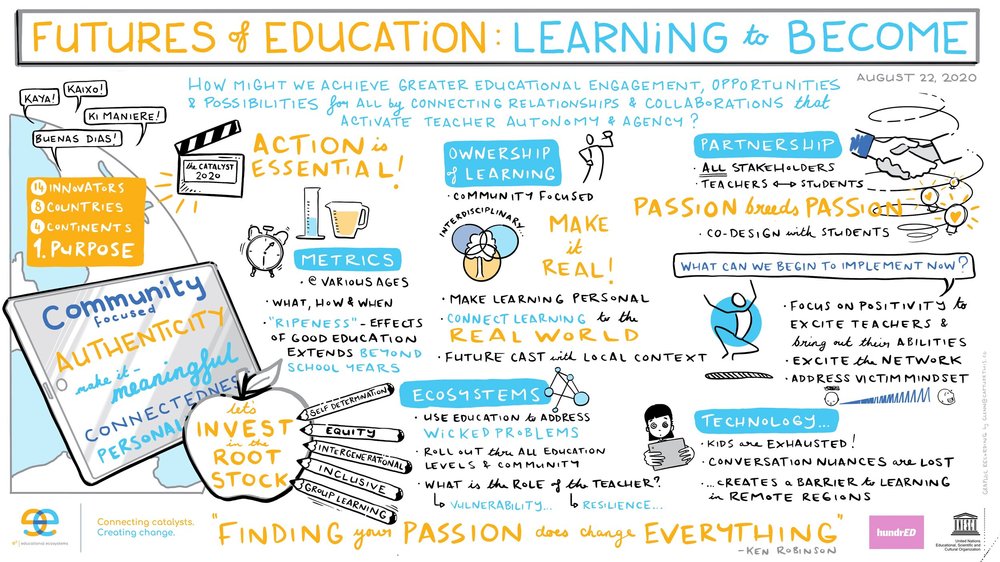 FUTURES of EDUCATION: LEARNING to BECOME
AUGUST 22, 2020
HOW MIGHT WE ACHIEVE GREATER EDUCATIONAL ENGAGEMENT, OPPORTUNITIES
& POSSIBILITIES for ALL by CONNECTING RELATIONSHIPS & COLLABORATIONS that
ACTIVATE TEACHER AUTONOMY & AGENCY?
KAYA!
KAIXO!
KI MANIERE!
BUENAS DIAS!
14 INNOVATORS
8 COUNTRIES
4 CONTINENTS
1. PURPOSE
the CATALYST
2020
ACTION is
ESSENTIAL!
METRICS
@ VARIOUS AGES
• WHAT, HOW & WHEN
• "RIPENESS" - EFFECTS
OF GOOD EDUCATION
EXTENDS BEYOND
SCHOOL YEARS
OWNERSHIP
of LEARNING
• COMMUNITY FOCUSED
INTERDISCIPLINARY...
MAKE
it
REAL!
• MAKE LEARNING PERSONAL
• CONNECT LEARNING to the
REAL WORLD
• FUTURE CAST with LOCAL CONTEXT
PARTNERSHIP
• ALL STAKEHOLDERS
• TEACHERS ↔ STUDENTS
PASSION breeds PASSION
• CO-DESIGN with STUDENTS
WHAT CAN WE BEGIN TO IMPLEMENT NOW?
• FOCUS ON POSITIVITY to
EXCITE TEACHERS &
bring out their ABILITIES
• EXCITE the NETWORK
• ADDRESS VICTIM MINDSET
Community
focused
AUTHENTICITY
make it -
meaningful
CONNECTEDNES
PERSONAL
let's
INVEST
in the
ROOT
STOCK
SELF DETERMINATION
EQUITY
INTERGENERATIONAL
INCLUSIVE
GROUP LEARNING
ECOSYSTEMS
• USE EDUCATION to ADDRESS
WICKED PROBLEMS
• ROLL OUT thru ALL EDUCATION
LEVELS & COMMUNITY
• WHAT is the ROLE of the TEACHER?
↳ VULNERABILITY... ↳ RESILIENCE...
TECHNOLOGY...
• KIDS are EXHAUSTED!
• CONVERSATION NUANCES are LOST
• ...CREATES a BARRIER to LEARNING
in REMOTE REGIONS
educational ecosystems
Connecting catalysts.
Creating change.
"FINDING your PASSION does change EVERYTHING"
- KEN ROBINSON
hundrED
United Nations
Educational, Scientific and
Cultural Organization